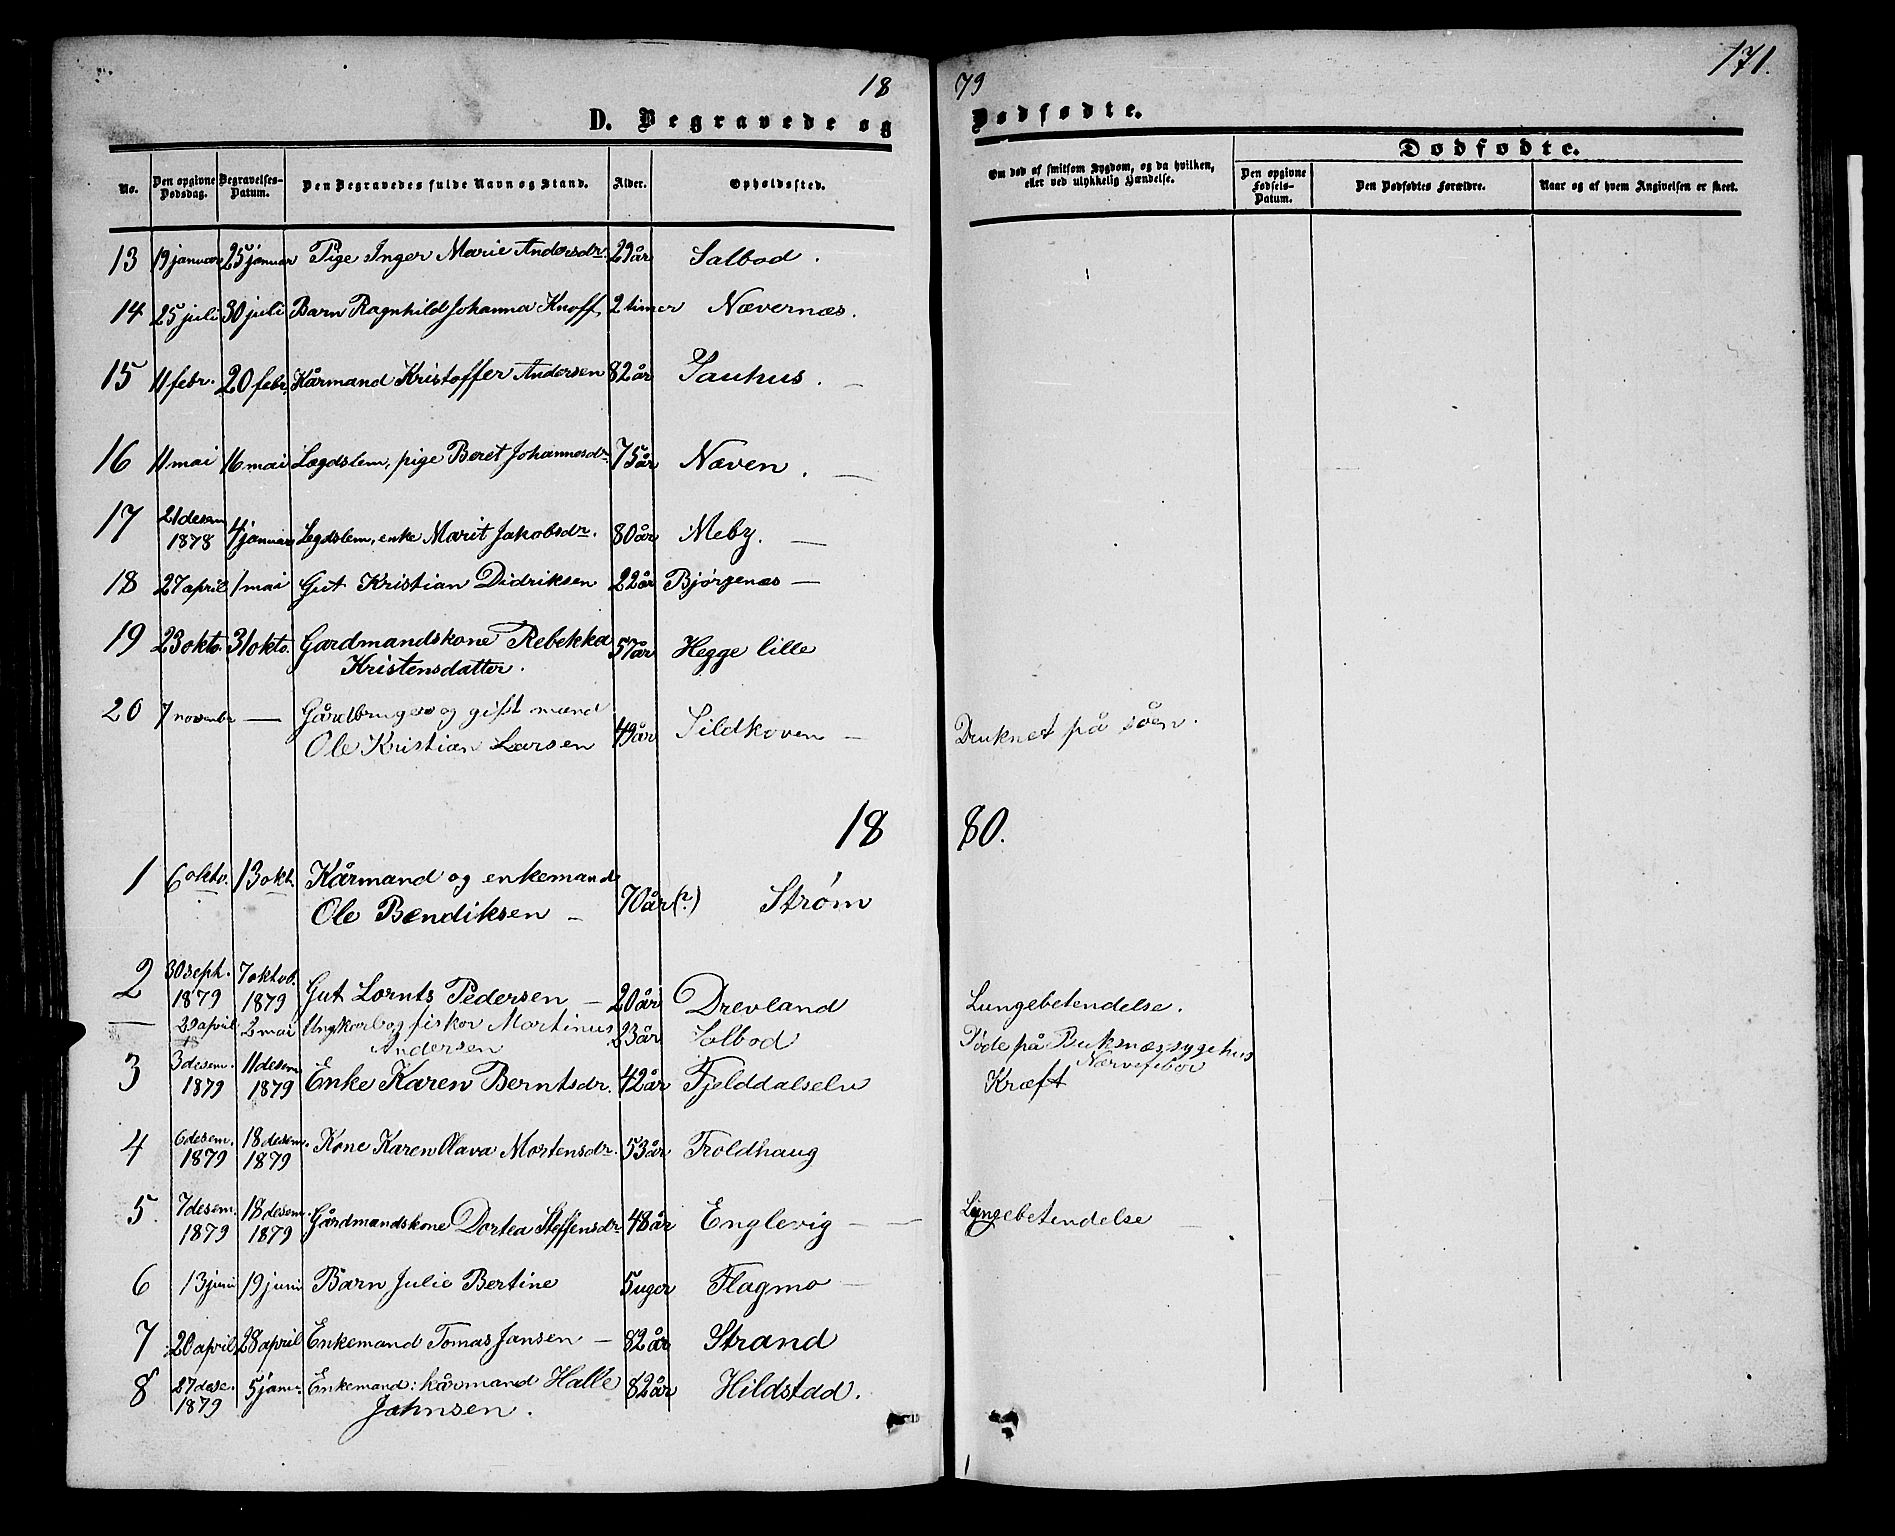 18 79 171.
D. Begravede og Dødfødte.
No. Den opgivne Dødsdag. Begravelses-Datum. Den Begravedes fulde Navn og Stand. Alder. Opholdssted. Om død af smitsom Sygdom, og da hvilken, eller ved ulykkelig Hændelse. Dødfødte.
Den opgivne Fødsels-Datum. Den Dødfødtes Forældre. Naar og af hvem Angivelsen er skeet.
13 19 januar 25 januar Pige Inger Marie Andersdr. 29 år Salbod.
14 25 juli 30 juli Barn Ragnhild Johanna Knoff, 2 timer Nævernæs.
15 11 febr. 20 febr. Kårmand Kristoffer Andersen 82 år Sauhus. —
16 11 mai 16 mai Lægdslem, pige Beret Johannesdr. 75 år Næven. —
17 21 desem 1878 4 januar Legdslem, enke Marit Jakobsdr. 80 år Meby. —
18 27 april 1 mai Gut Kristian Didriksen 22 år Bjørgenæs —
19 23 okto. 31 okto. Gardmandskone Rebekka
Kristensdatter. 57 år Hegge lille
20 7 novembr — Gårdbruger og gift mand
Ole Kristian Larsen 49 år Sildkoven — Druknet på söen.
18 80.
1 6 okto. 13 okt. Kårmand og enkemand
Ole Bendiksen — 70 år (?) Strøm
2 30 sept. 1879 7 oktob. 1879 Gut Lornts Pedersen — 20 år Drevland Lungebetendelse.
— 29 april 2 mai Ungkarl og fisker Martinus
Andersen 23 år Salbod Døde på Buksnæs sygehus
Nærvefeber
3 3 desem. 1879 11 desem 1879 Enke Karen Berntsdr. 42 år Fjelddalselv Kræft
4 6 desem. 1879 18 desem. 1879 Kone Karen Olava Mortensdr. 53 år Troldhaug
5. 7 desem. 1879 18 desem. 1879 Gårdmandskone Dortea Steffensdr. 48 år Englevig — Lungebetendelse —
6 13 juni 19 juni Barn Julie Bertine 5 uger Flagmo —
7 20 april 28 april Enkemand Tomas Jansen — 82 år Strand
8 27 dese. 1879 5 jan. Enkemand: kårmand Halle
Johnsen. 82 år Hildstad.